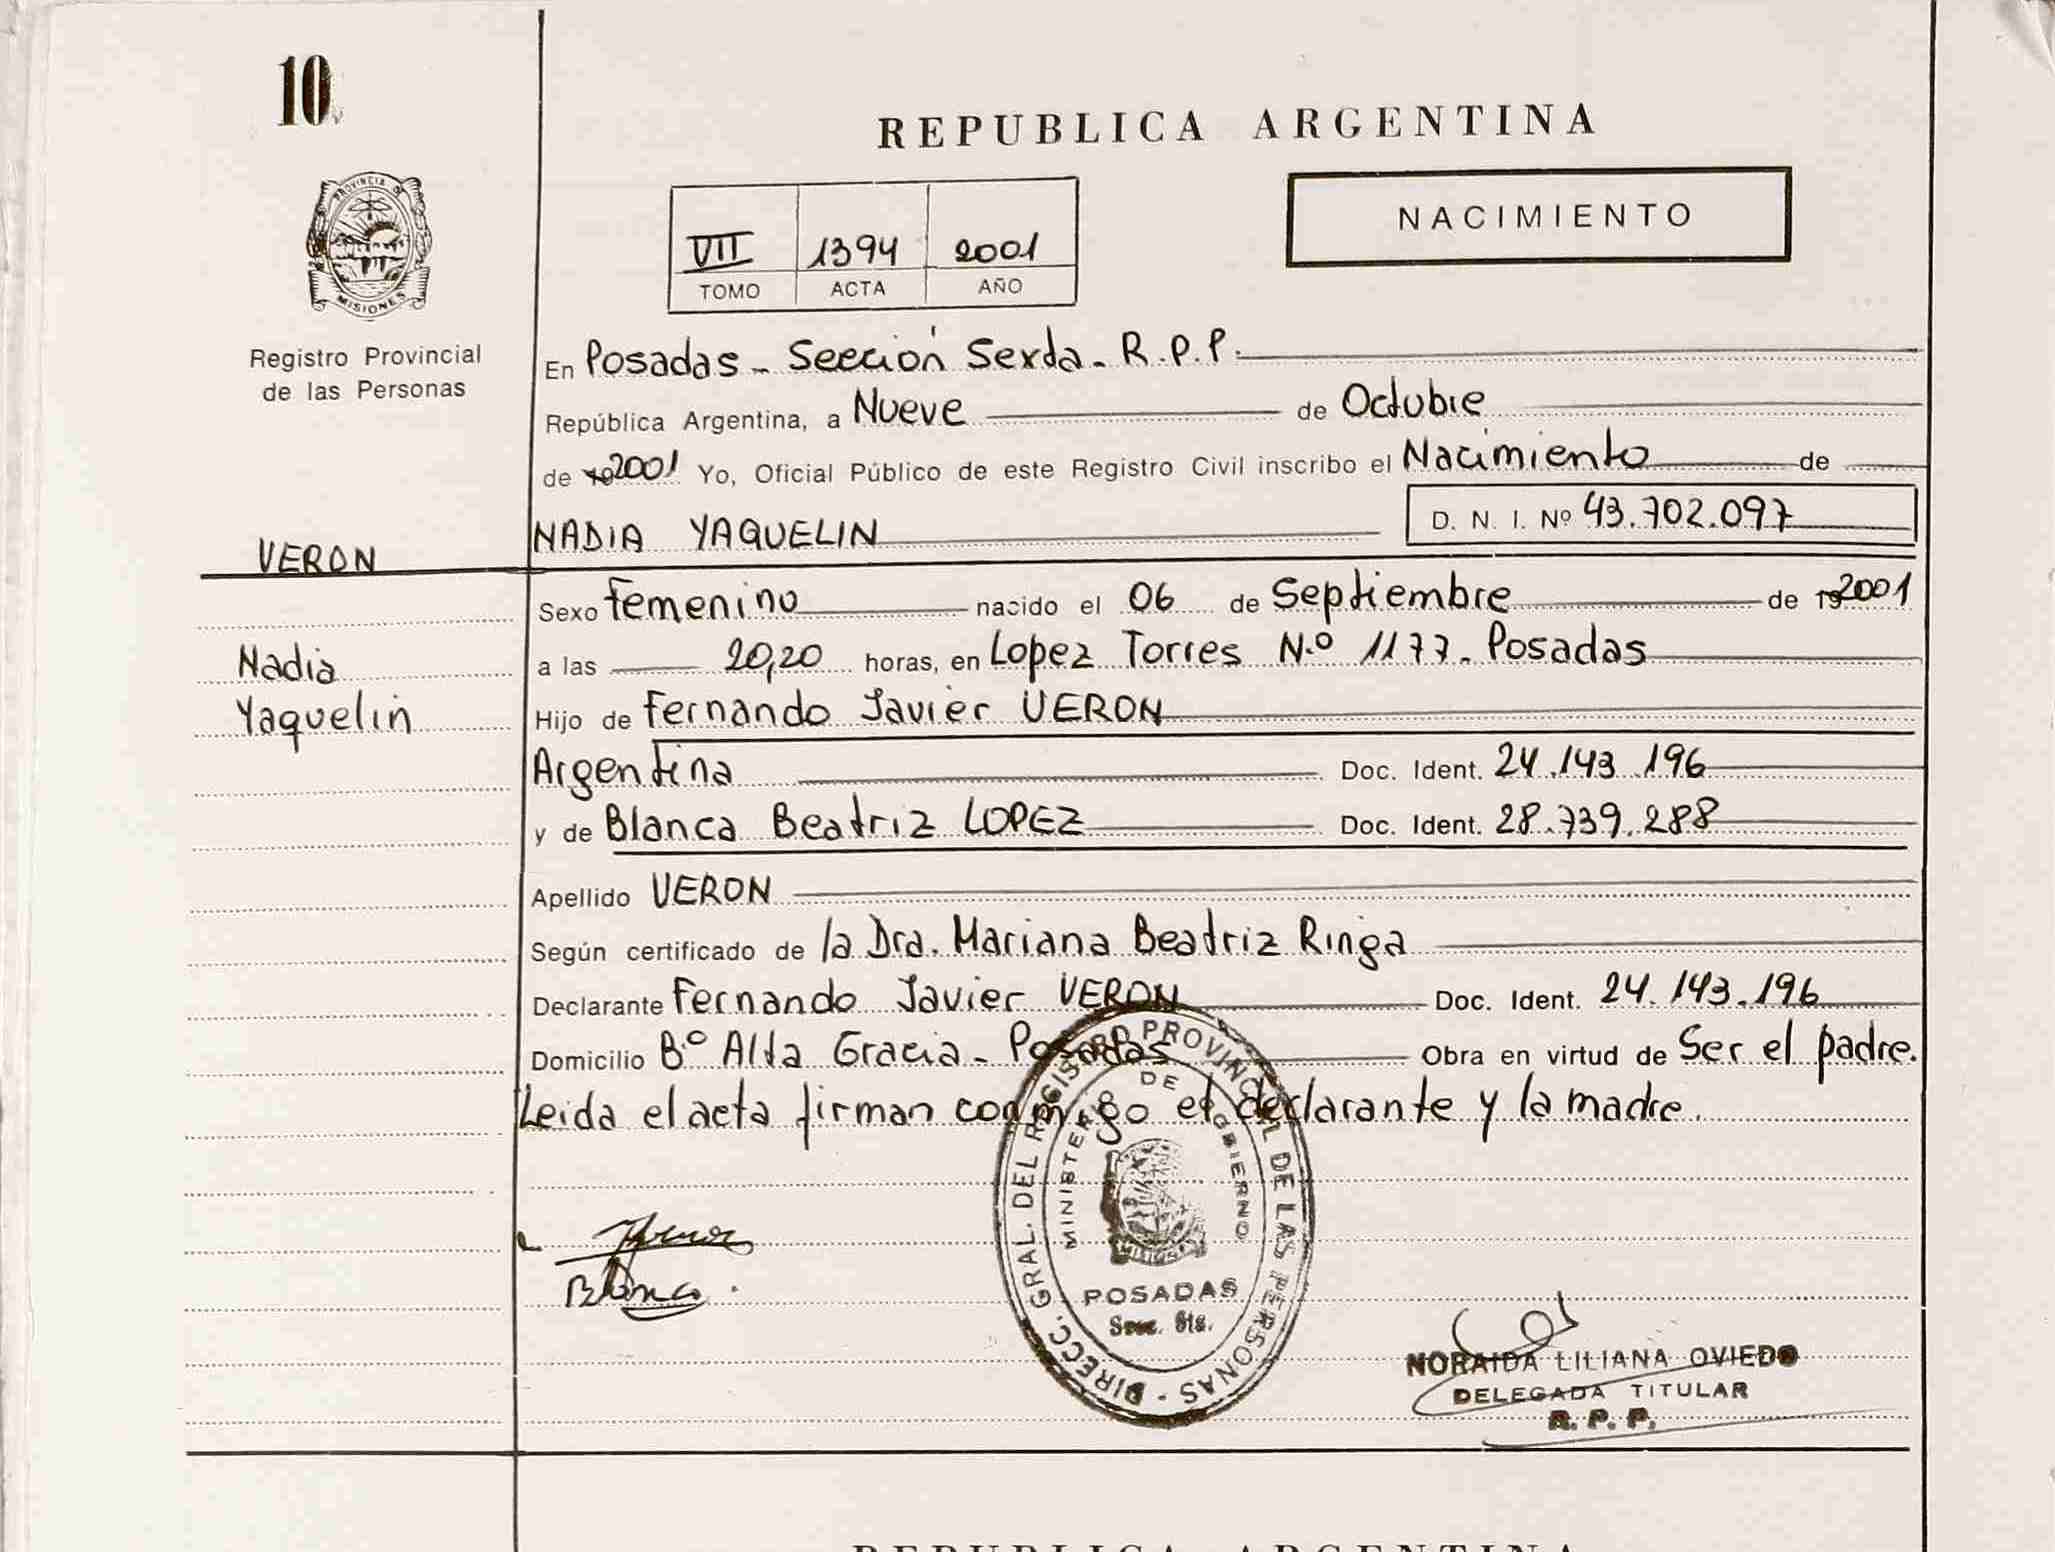 10
REPUBLICA ARGENTINA
PROVINCIA DE
MISIONES
NACIMIENTO
VII 1394 2001
TOMO ACTA AÑO
Registro Provincial
de las Personas
En Posadas - Sección Sexta - R.P.P.
República Argentina, a Nueve de Octubre
de 192001 Yo, Oficial Público de este Registro Civil inscribo el Nacimiento de
NADIA YAQUELIN D. N. I. Nº 43.702.097
VERON
Sexo Femenino nacido el 06 de Septiembre de 192001
Nadia
a las 20,20 horas, en Lopez Torres N.º 1177 - Posadas
Yaquelin
Hijo de Fernando Javier VERON
Argentina Doc. Ident. 24.143.196
y de Blanca Beatriz LOPEZ Doc. Ident. 28.739.288
Apellido VERON
Según certificado de la Dra. Mariana Beatriz Ringa
Declarante Fernando Javier VERON Doc. Ident. 24.143.196
Domicilio Bº Alta Gracia - Posadas Obra en virtud de Ser el padre.
Leida el acta firman conmigo el declarante y la madre.
DIRECC. GRAL. DEL REGISTRO PROVINCIAL DE LAS PERSONAS -
MINISTERIO DE GOBIERNO
MISIONES
POSADAS
Secc. 6ta.
Blanca.
NORAIDA LILIANA OVIEDO
DELEGADA TITULAR
R. P. P.
REPUBLICA ARGENTINA